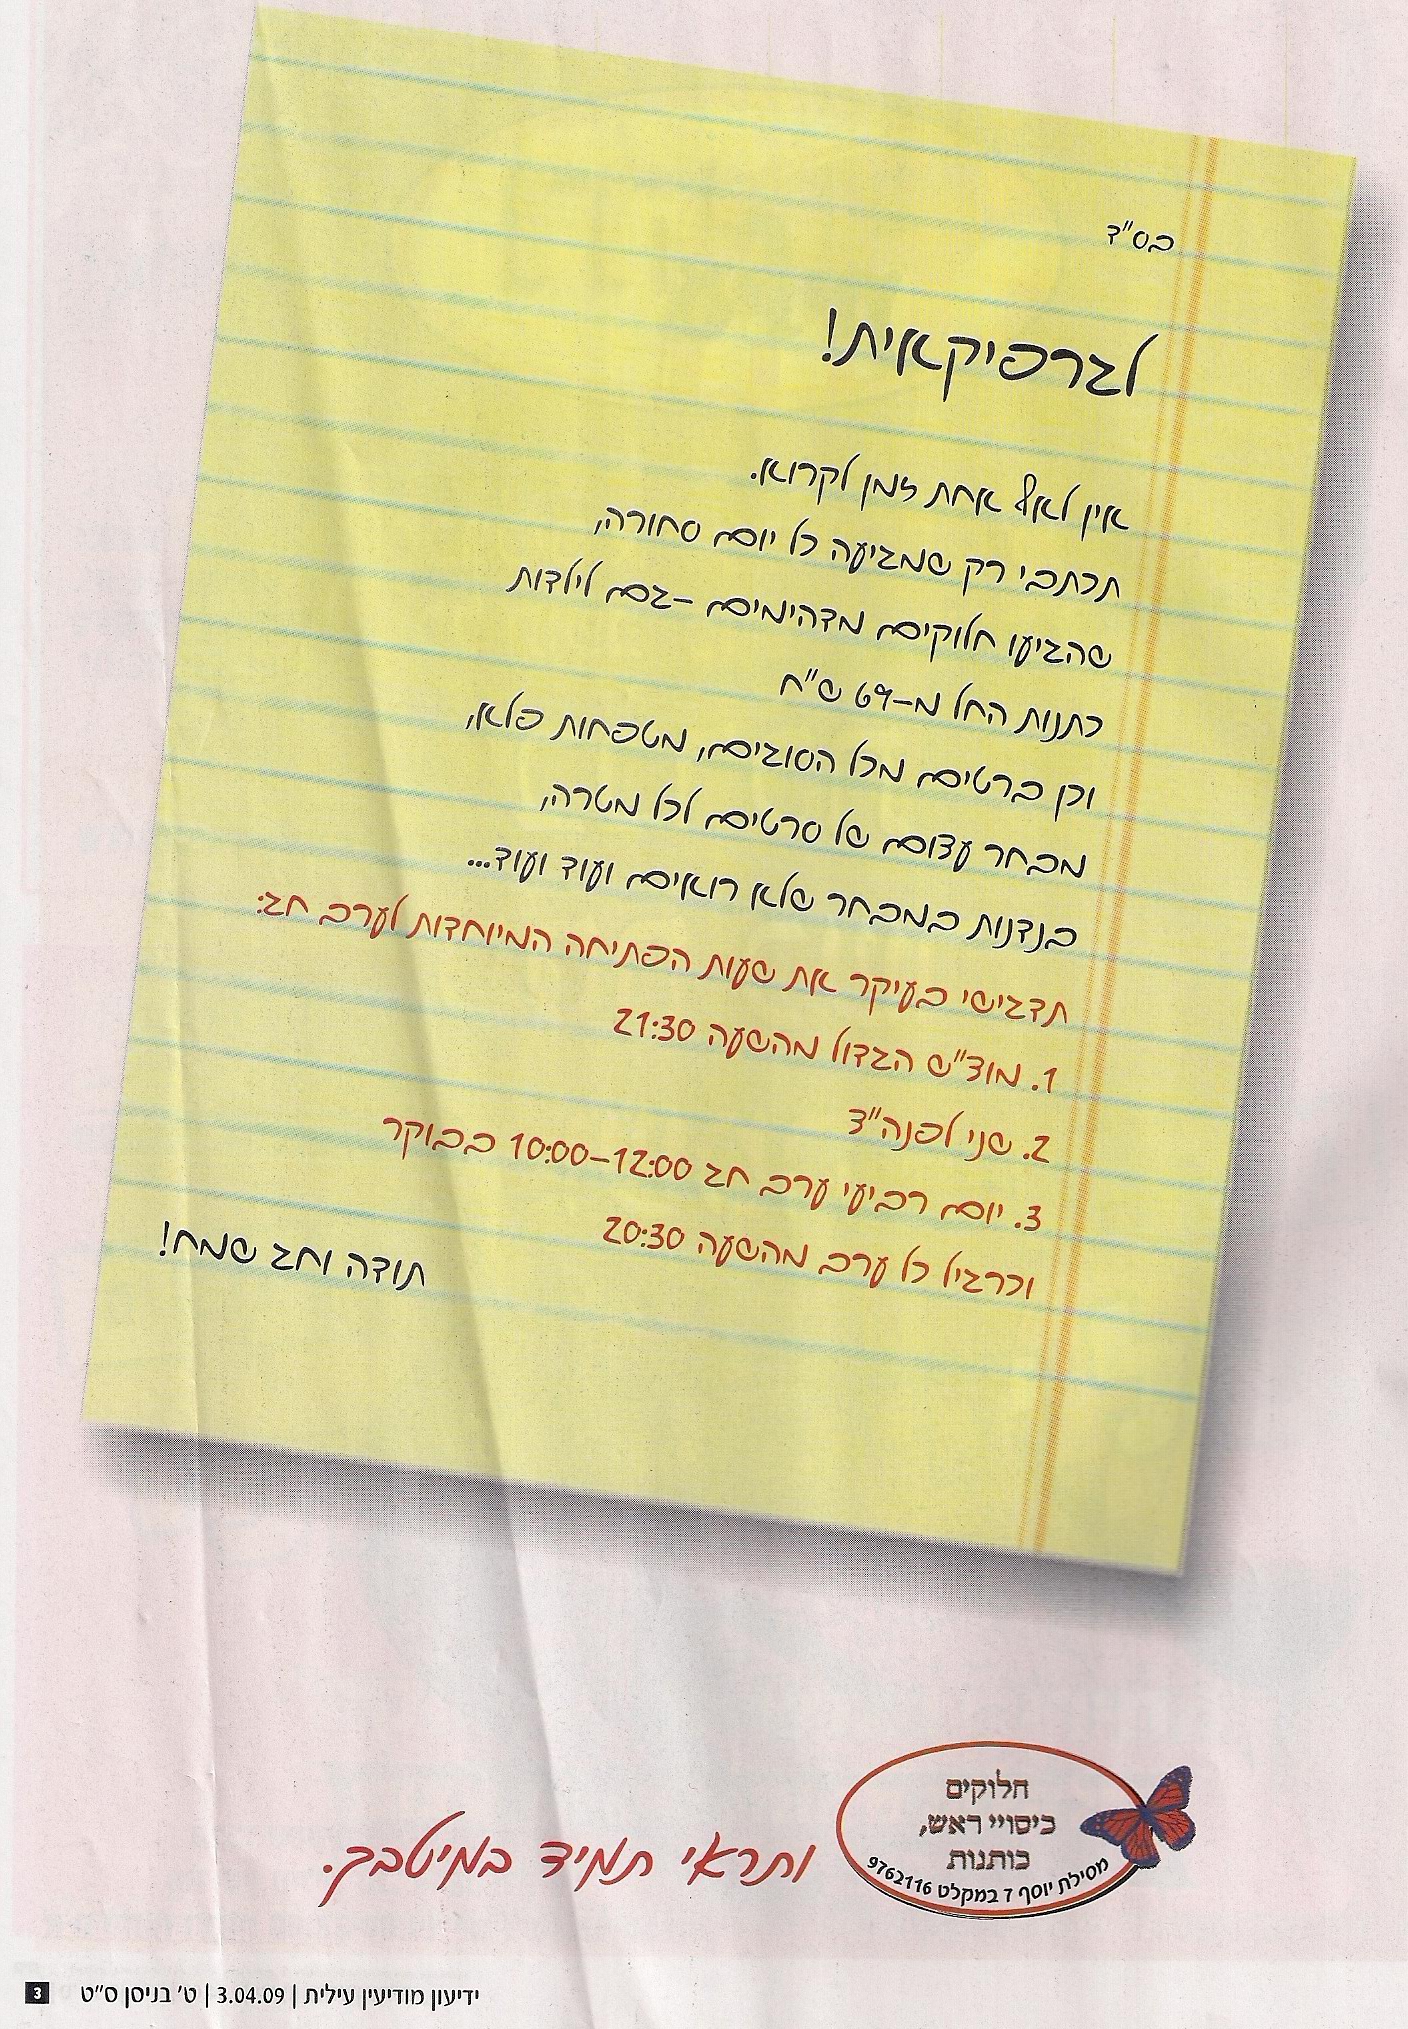 בס"ד
לגרפיקאית!
אין לאף אחת זמן לקרוא.
תכתבי רק שמגיעה כל יום סחורה,
שהגיעו חלוקים מדהימים – גם לילדות
כתנות החל מ–69 ש"ח
וכן ברטים מכל הסוגים, מטפחות פלא,
מבחר עצום של סרטים לכל מטרה,
בנדנות במבחר שלא רואים ועוד ועוד...
תדגישי בעיקר את שעות הפתיחה המיוחדות לערב חג:
1. מוצ"ש הגדול מהשעה 21:30
2. שני לפנה"צ
3. יום רביעי ערב חג 10:00–12:00 בבוקר
וכרגיל כל ערב מהשעה 20:30
תודה וחג שמח!
חלוקים
כיסויי ראש,
כותנות
מסילת יוסף 7 במקלט 9762116
ותראי תמיד במיטבך.
ידיעון מודיעין עילית | 3.04.09 | ט' בניסן ס"ט
3